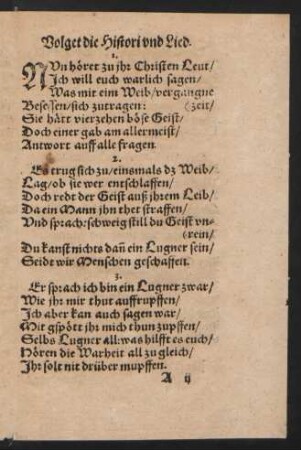 Volget die Histori vnd Lied.
1.
NVn höret zu jhr Christen Leut/
Ich will euch warlich sagen/
Was mit eim Weib/vergangne
Besessen/sich zutragen: (zeit/
Sie hàtt vierzehen böse Geist/
Doch einer gab am allermeist/
Antwort auff alle fragen.
2.
Es trug sich zu/einsmals dz Weib/
Lag/ob sie wer entschlaffen/
Doch redt der Geist auß jhrem Leib/
Da ein Mann jhn thet straffen/
Vnd sprach: schweig still du Geist vn-
(rein/
Du kanst nichts dañ ein Lugner sein/
Seidt wir Menschen geschaffen.
3.
Er sprach ich bin ein Lugner zwar/
Wie jhr mir thut auffrupffen/
Ich aber kan auch sagen war/
Mit gspött jhr mich thun zupffen/
Selbs Lugner all: was hilfft es euch/
Hören die Warheit all zu gleich/
Jhr solt nit drüber mupffen.
A ij